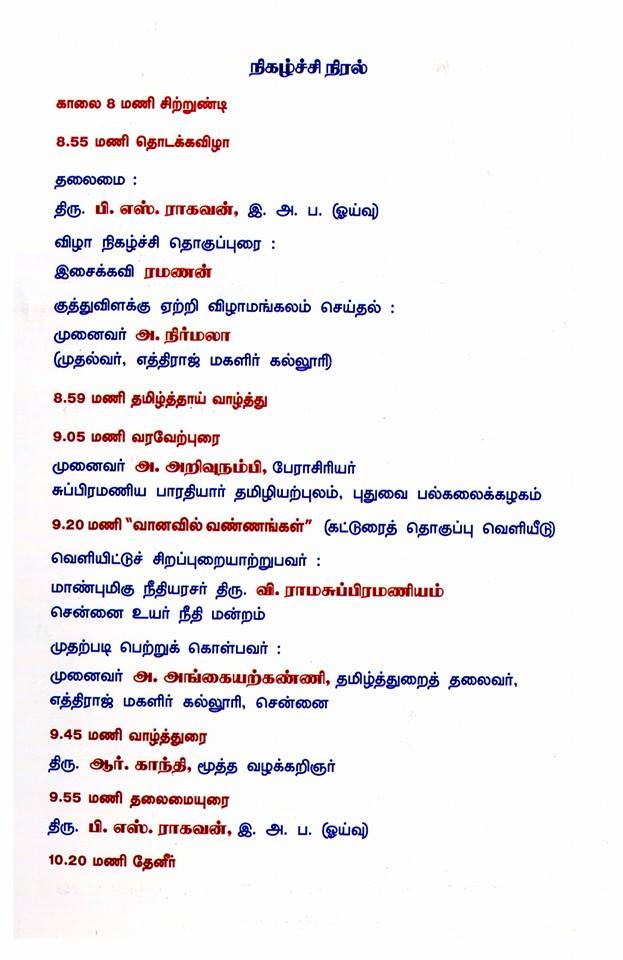 நிகழ்ச்சி நிரல்
காலை 8 மணி சிற்றுண்டி
8.55 மணி தொடக்கவிழா
தலைமை :
திரு. பி. எஸ். ராகவன், இ. அ. ப. (ஓய்வு)
விழா நிகழ்ச்சி தொகுப்புரை :
இசைக்கவி ரமணன்
குத்துவிளக்கு ஏற்றி விழாமங்கலம் செய்தல் :
முனைவர் அ. நிர்மலா
(முதல்வர், எத்திராஜ் மகளிர் கல்லூரி)
8.59 மணி தமிழ்த்தாய் வாழ்த்து
9.05 மணி வரவேற்புரை
முனைவர் அ. அறிவுநம்பி, பேராசிரியர்
சுப்பிரமணிய பாரதியார் தமிழியற்புலம், புதுவை பல்கலைக்கழகம்
9.20 மணி “வானவில் வண்ணங்கள்” (கட்டுரைத் தொகுப்பு வெளியீடு)
வெளியிட்டுச் சிறப்புறையாற்றுபவர் :
மாண்புமிகு நீதியரசர் திரு. வி. ராமசுப்பிரமணியம்
சென்னை உயர் நீதி மன்றம்
முதற்படி பெற்றுக் கொள்பவர் :
முனைவர் அ. அங்கையற்கண்ணி, தமிழ்த்துறைத் தலைவர்,
எத்திராஜ் மகளிர் கல்லூரி, சென்னை
9.45 மணி வாழ்த்துரை
திரு. ஆர். காந்தி, மூத்த வழக்கறிஞர்
9.55 மணி தலைமையுரை
திரு. பி. எஸ். ராகவன், இ. அ. ப. (ஓய்வு)
10.20 மணி தேனீர்